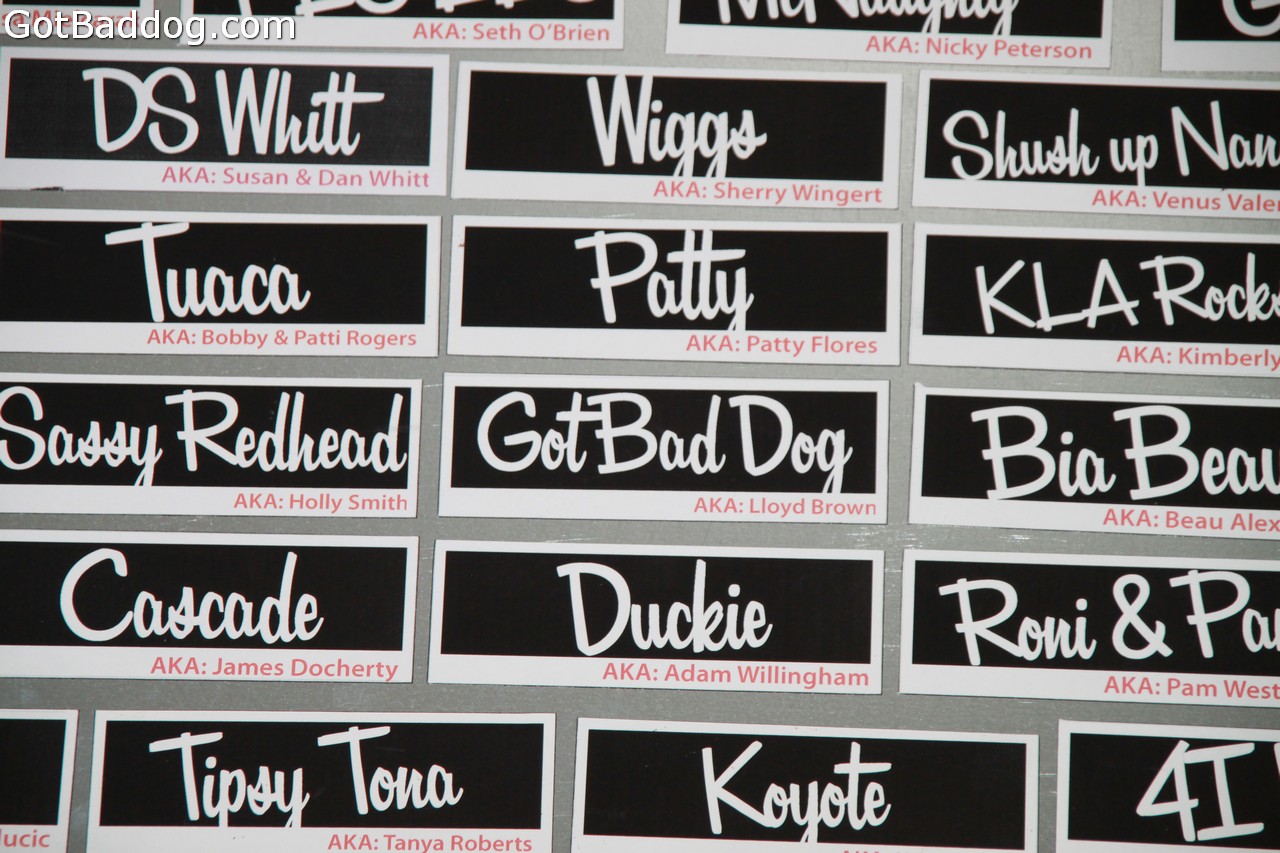 GotBaddog.com
AKA: Seth O'Brien
McNaughty
AKA: Nicky Peterson
DS Whitt
AKA: Susan & Dan Whitt
Wiggs
AKA: Sherry Wingert
Shush up Nan
AKA: Venus Valen
Tuaca
AKA: Bobby & Patti Rogers
Patty
AKA: Patty Flores
KLA Rocks
AKA: Kimberly
Sassy Redhead
AKA: Holly Smith
GotBad Dog
AKA: Lloyd Brown
Bia Beau
AKA: Beau Alex
Cascade
AKA: James Docherty
Duckie
AKA: Adam Willingham
Roni & Pa
AKA: Pam West
Tipsy Tona
AKA: Tanya Roberts
Koyote
4I